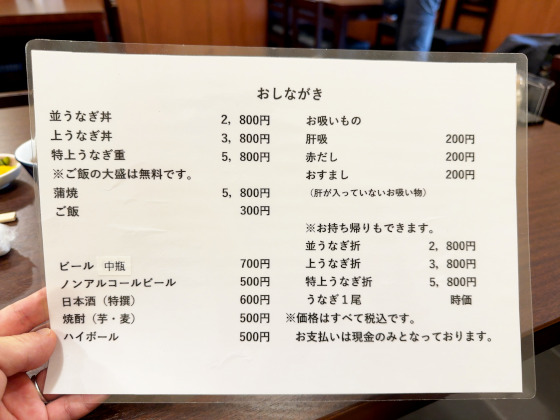 おしながき
並うなぎ丼 2，800円
上うなぎ丼 3，800円
特上うなぎ重 5，800円
※ご飯の大盛は無料です。
蒲焼 5，800円
ご飯 300円
ビール 中瓶 700円
ノンアルコールビール 500円
日本酒（特撰） 600円
焼酎（芋・麦） 500円
ハイボール 500円
お吸いもの
肝吸 200円
赤だし 200円
おすまし 200円
（肝が入っていないお吸い物）
※お持ち帰りもできます。
並うなぎ折 2，800円
上うなぎ折 3，800円
特上うなぎ折 5，800円
うなぎ１尾 時価
※価格はすべて税込です。
お支払いは現金のみとなっております。